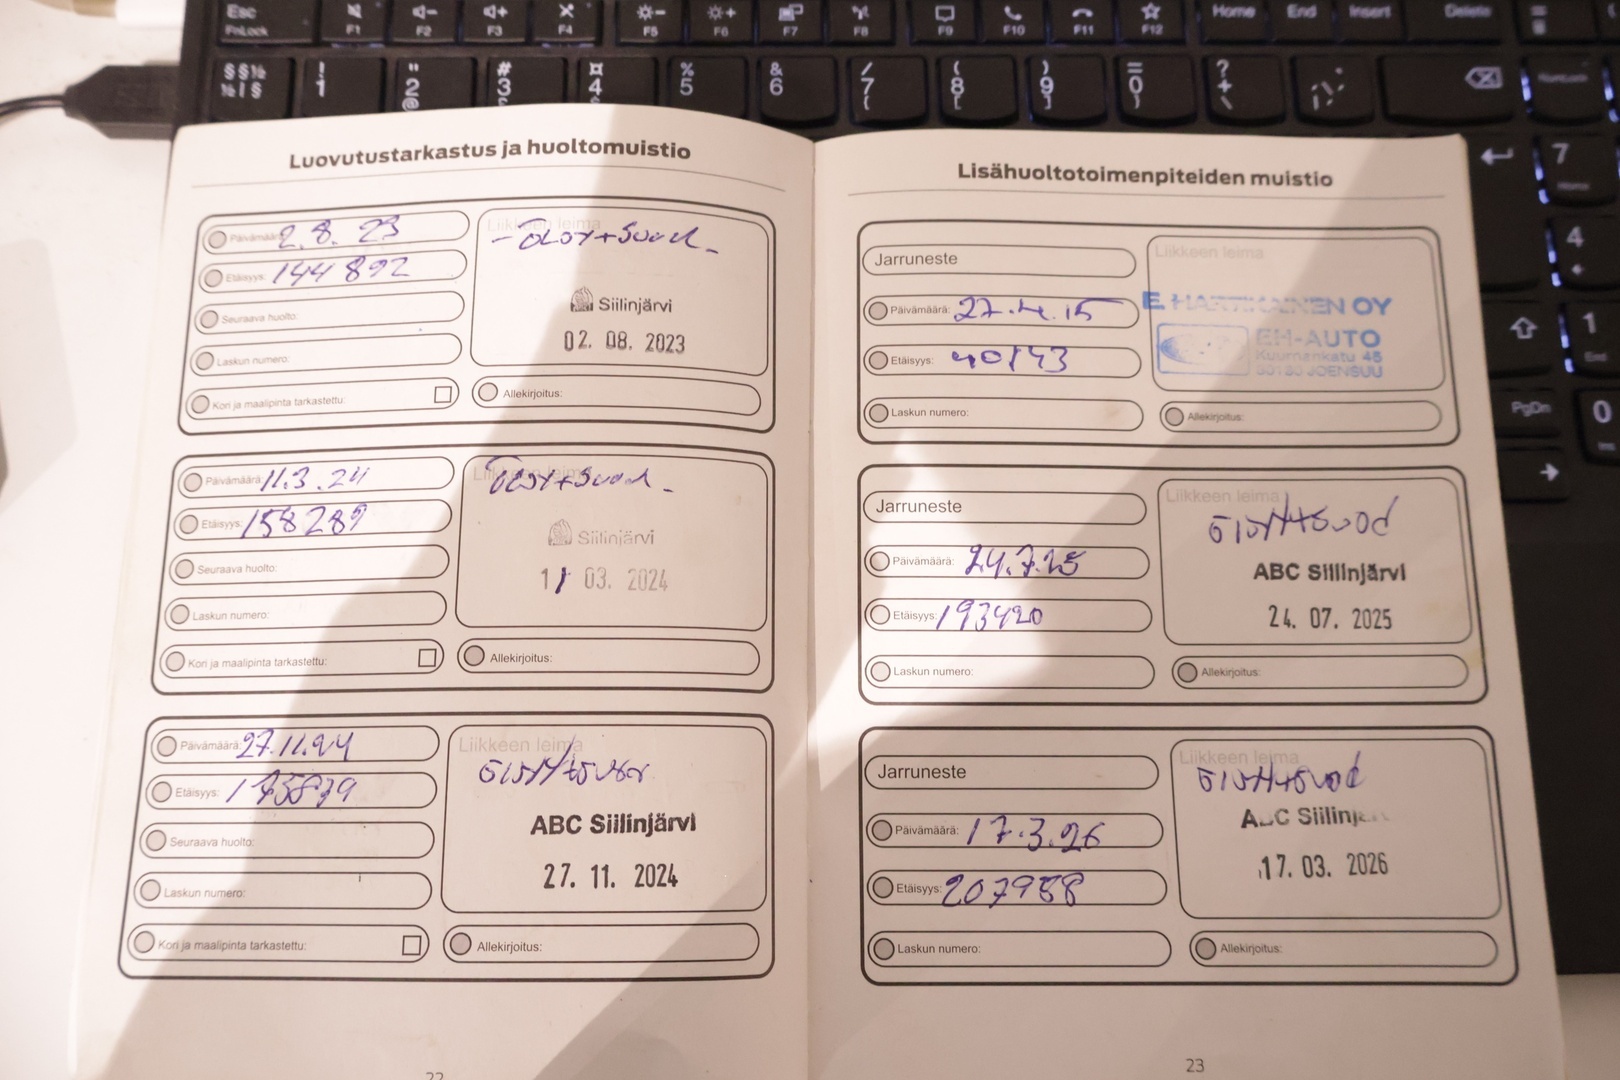 Esc
FnLock
F1
F2
F3
F4
F5
F6
F7
F8
F9
F10
F11
F12
Home
End
Insert
Delete
§§½
½|§
!
1
"
2
@
#
3
¤
4
%
5
&
6
/
7
{
(
8
[
)
9
]
=
0
}
?
+
\
7
Home
4
1
End
PgDn
0
Luovutustarkastus ja huoltomuistio
Päivämäärä: 2.8.23
Etäisyys: 144 892
Seuraava huolto:
Laskun numero:
Kori ja maalipinta tarkastettu:
Liikkeen leima
Siilinjärvi
02. 08. 2023
Allekirjoitus:
Päivämäärä: 11.3.24
Etäisyys: 158289
Seuraava huolto:
Laskun numero:
Kori ja maalipinta tarkastettu:
Liikkeen leima
Siilinjärvi
11 03. 2024
Allekirjoitus:
Päivämäärä: 27.11.24
Etäisyys:
Seuraava huolto:
Laskun numero:
Kori ja maalipinta tarkastettu:
Liikkeen leima
ABC Siilinjärvi
27. 11. 2024
Allekirjoitus:
22
Lisähuoltotoimenpiteiden muistio
Jarruneste
Päivämäärä: 27.4.15
Etäisyys: 40143
Laskun numero:
Liikkeen leima
E. HARTIKAINEN OY
EH-AUTO
Kuurnankatu 45
80130 JOENSUU
Allekirjoitus:
Jarruneste
Päivämäärä: 24.7.25
Etäisyys: 193420
Laskun numero:
Liikkeen leima
ABC Siilinjärvi
24. 07. 2025
Allekirjoitus:
Jarruneste
Päivämäärä: 17.3.26
Etäisyys: 207958
Laskun numero:
Liikkeen leima
ABC Siilinjärvi
17. 03. 2026
Allekirjoitus:
23